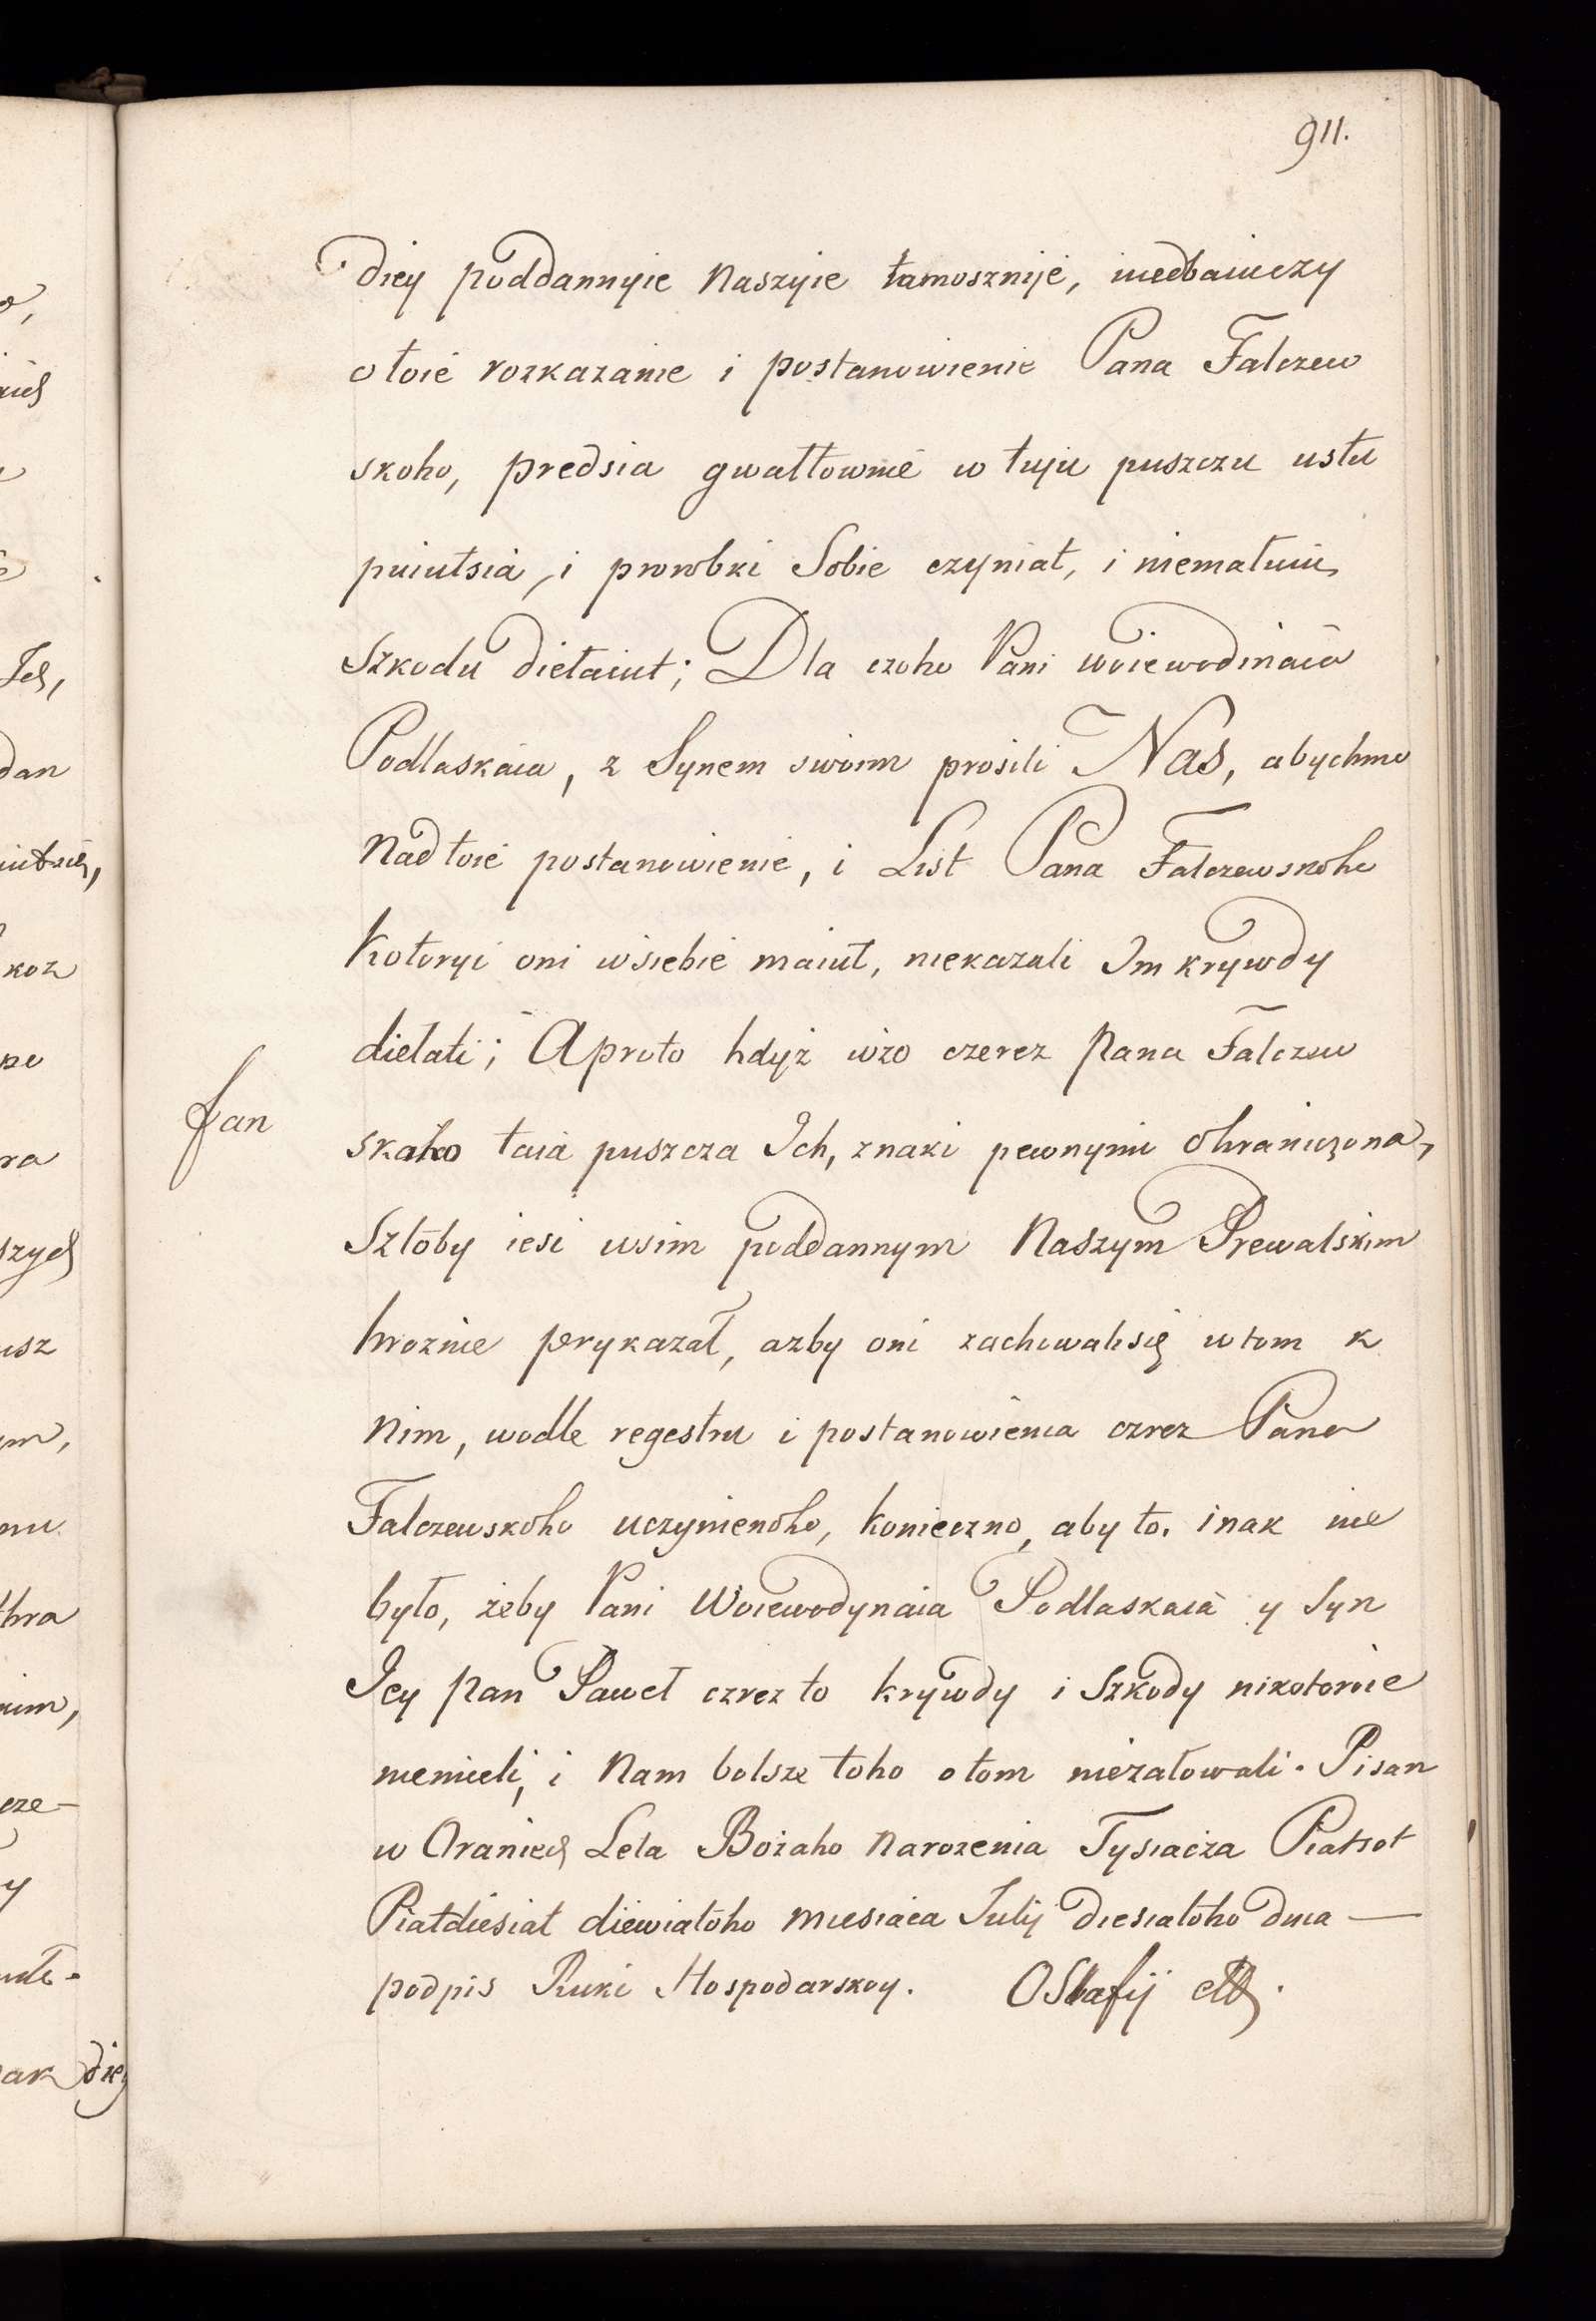 911.
diey poddannyie Naszyie tamosznije, niedbaiuczy
otoie rozkazanie i postanowienie Pana Falczew
skoho, predsia gwałtownie w tuju puszczu ustu
puiutsia, i prorobki Sobie czyniat, i niemałuiu
Szkodu diełaiut; Dla czoho Pani woiewodinaia
Podlaskaia, z Synem swoim prosili Nas, abychmo
Nad toie postanowienie, i List Pana Falczewskoho
Kotoryi oni wsiebie maiut, niekazali Im krywdy
diełati; Aproto hdyż wżo czerez Pana Falczew
Jan
skoho taia puszcza Ich, znaki pewnymi ohraniczona,
Sztoby iesi wsim poddannym Naszym Prewalskim
hroznie prykazał, azby oni zachowalisię wtom k
Nim, wodle regestru i postanowienia czrez Pana
Falczewskoho uczynienoho, koniecznо, aby to. inak nie
było, żeby Pani Woiewodynaia Podlaskaia y Syn
Jey pan Paweł czrez to krywdy i Szkody nikotoroie
niemieli, i Nam bolsze toho otom nieżałowali. Pisan
w Oraniech Leta Bożaho Narozenia Tysiacza Piatsot
Piatdiesiat diewiatoho miesiaca Julij diesiatoho dnia —
podpis Ruki Hospodarskoy. Ostafij